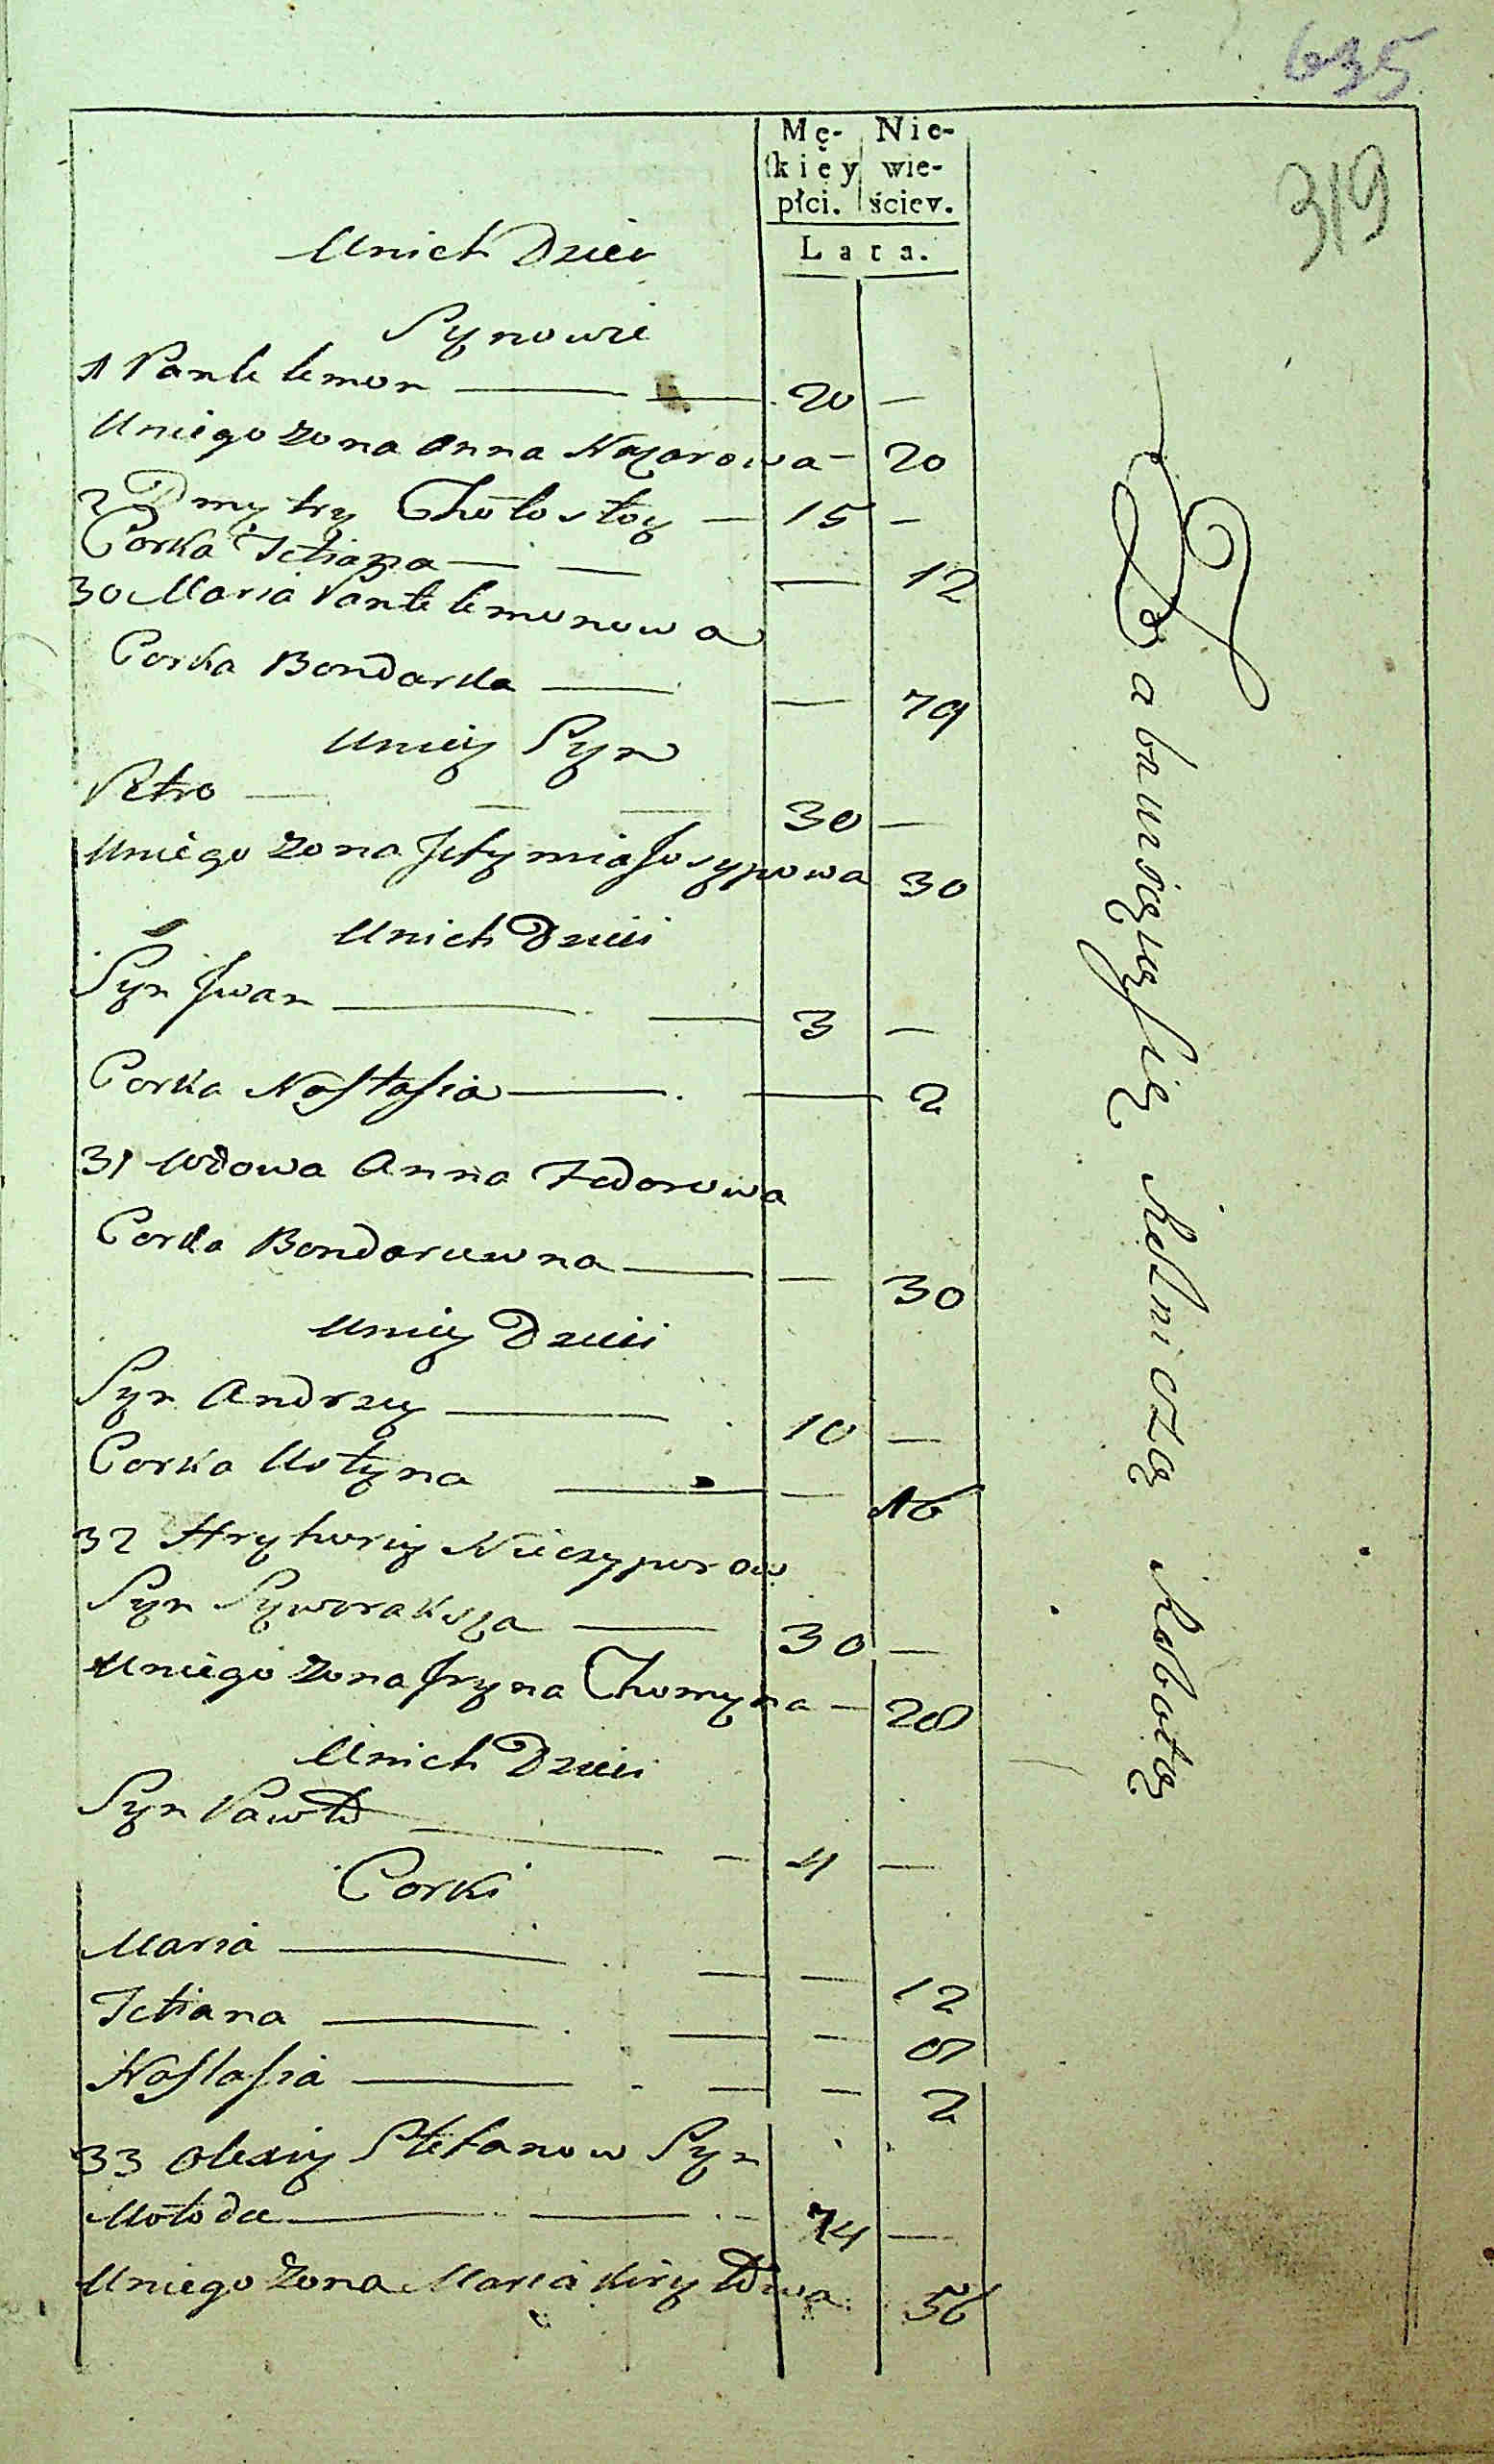 635
319
Mę- Nie-
skięy wie-
płci. ściey.
Lata.
Unich Dzieci
Synowie
1 Pantelemon — — 20 —
Uniego zona Anna Nazarowa — 20
2 Dmytry Chołostoy — 15 —
Corka Tetiana — — — 12
30 Maria Pantelemonowa
Corka Bondarka — — 79
Uniey Syn
Petro — — — 30 —
Uniego zona Jefymia Josypowa 30
Unich Dzieci
Syn Jwan — — 3 —
Corka Nastasia — — 2
31 Wdowa Anna Fedorowa
Corka Bondarowna — — 30
Uniey Dzieci
Syn Andrzey — 10 —
Corka Ustyna — — 16
32 Hryhoriy Nieczyporow
Syn Syworaksza — 30 —
Uniego zona Jryna Chomyna — 28
Unich Dzieci
Syn Pawło — — 4 —
Corki
Maria — — — 12
Tetiana — — —
Nastasia — — — 2
33 Olexiy Stefanow Syn
Mołoda — — — 74 —
Uniego zona Maria Kiryłowa 56
Zabawiaią się Rolniczą Robotą